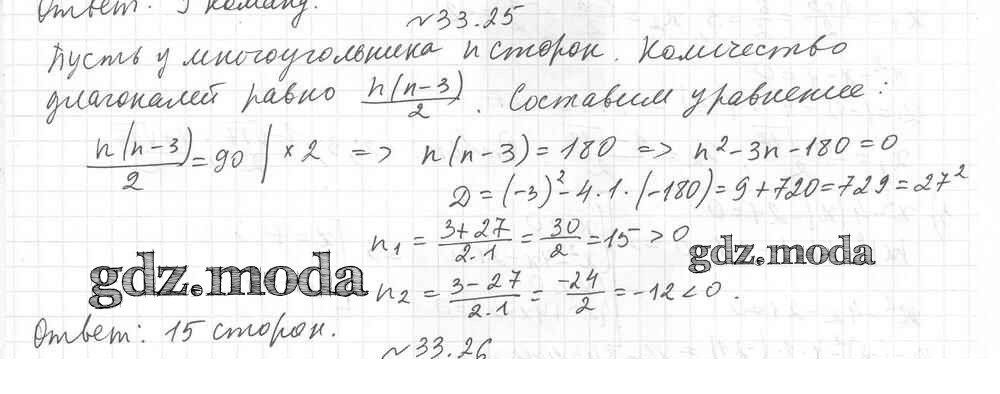 Ответ: 5 команд.
№33.25
Пусть у многоугольника n сторон. Количество
диагоналей равно n(n-3)/2. Составим уравнение:
n(n-3)/2 = 90 | × 2 => n(n-3) = 180 => n² - 3n - 180 = 0
D = (-3)² - 4·1·(-180) = 9 + 720 = 729 = 27²
n₁ = (3+27)/(2·1) = 30/2 = 15 > 0
gdz.moda
gdz.moda
n₂ = (3-27)/(2·1) = -24/2 = -12 < 0.
Ответ: 15 сторон.
№33.26